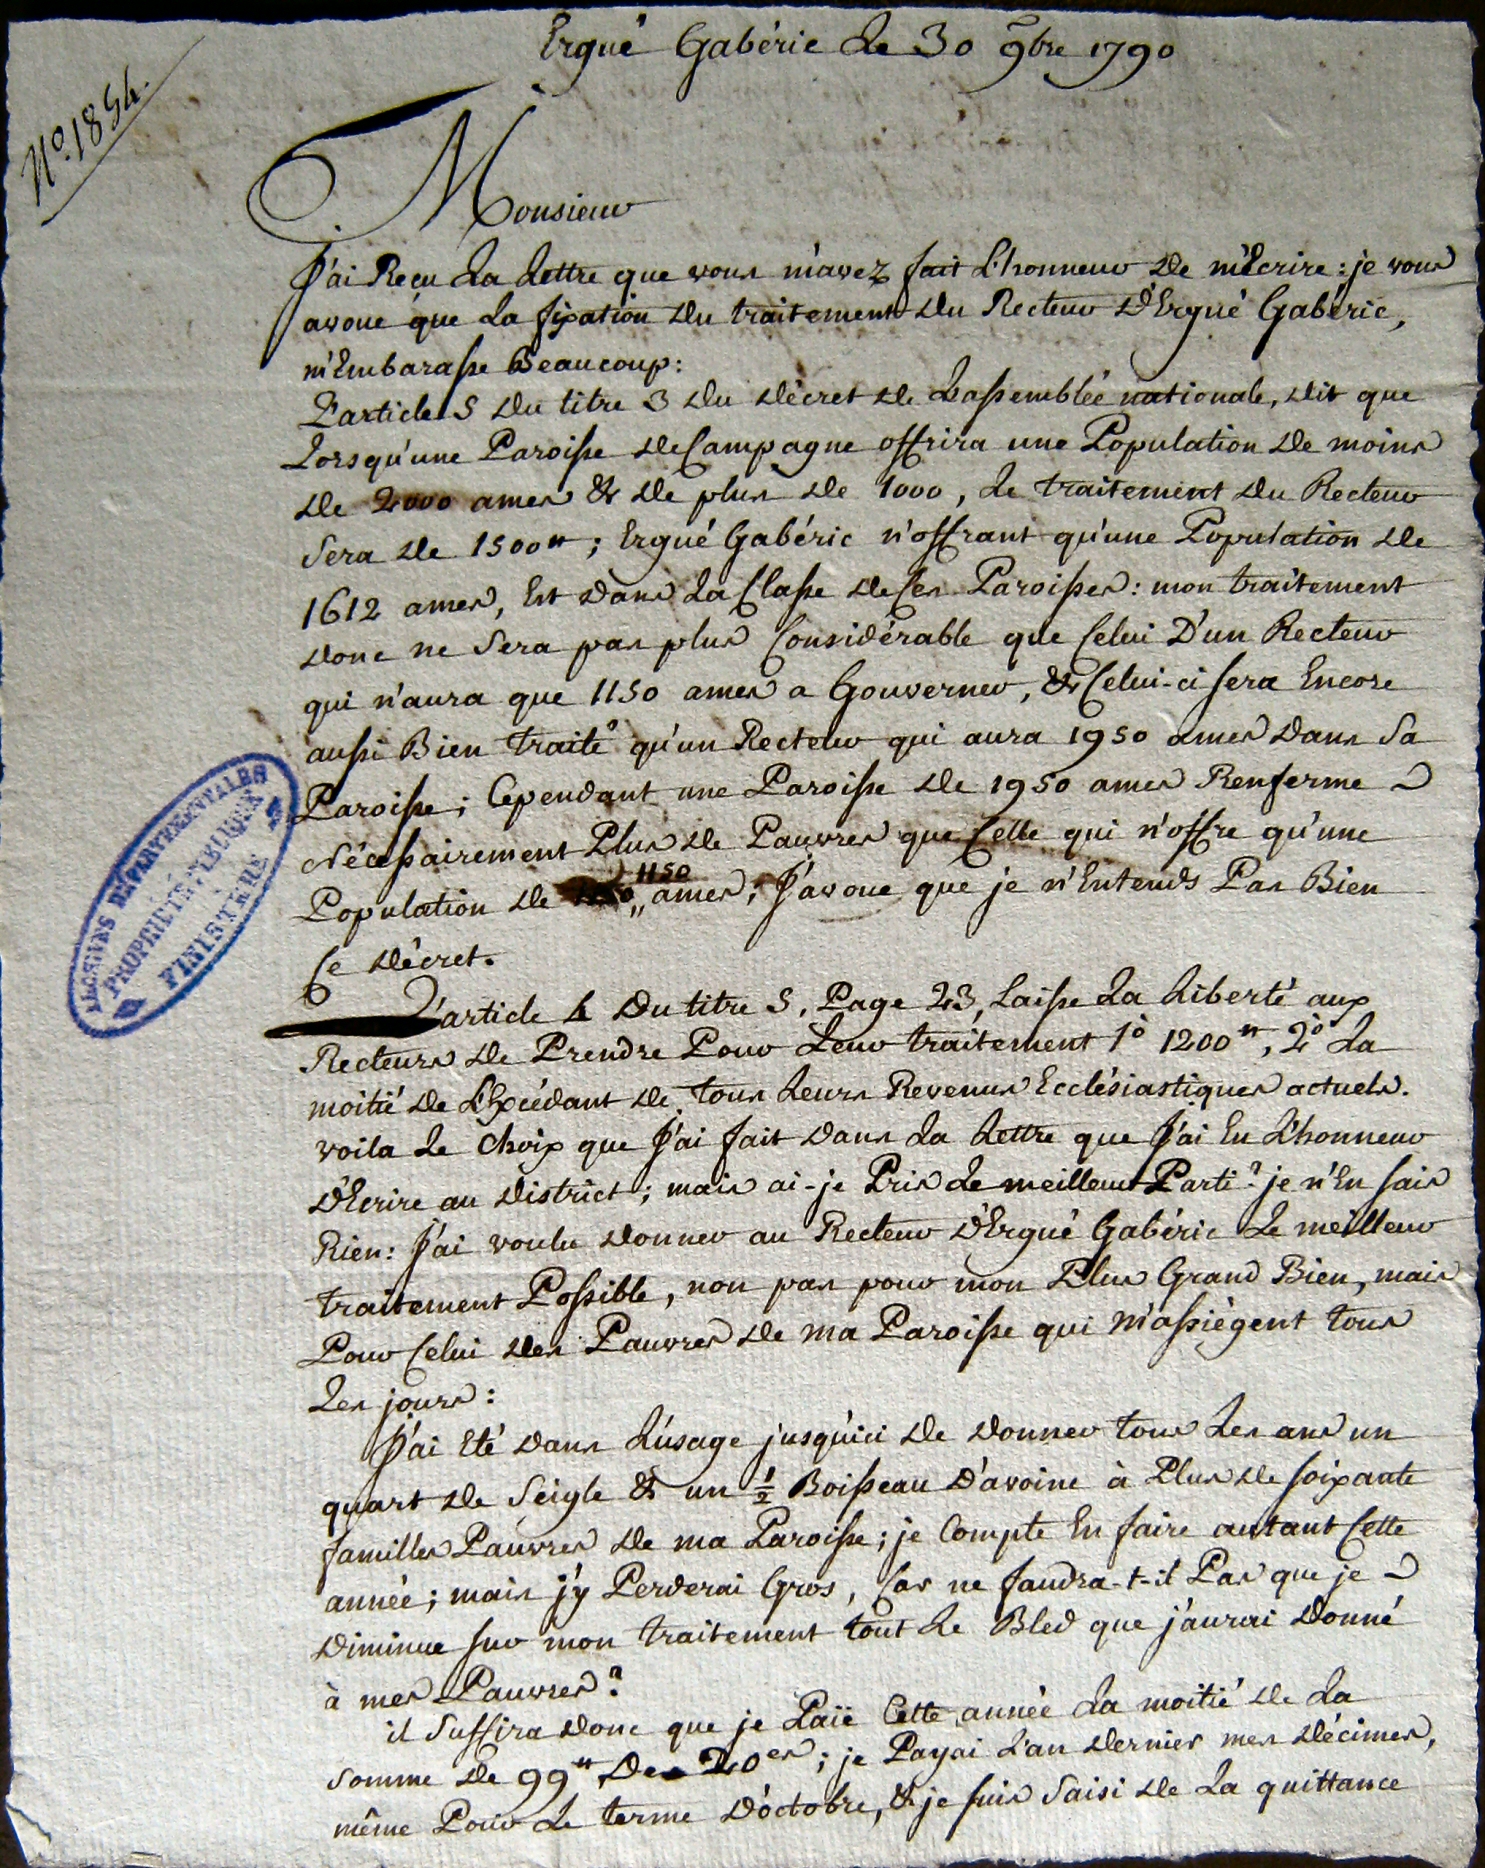 Ergué Gabéric Le 30 9bre 1790
N.o 1854.
Monsieur
J'ai Reçu La Lettre que vous m'avez fait L'honneur De m'Ecrire : je vous
avoue que La fixation Du traitement Du Recteur D'Ergué Gabéric,
m'Embarasse Beaucoup :
L'article 5 Du titre 3 Du Décret De L'assemblée nationale, Dit que
Lorsqu'une Paroisse De Campagne offrira une Population De moins
De 2000 ames & De plus De 1000, Le traitement Du Recteur
Sera De 1500tt ; Ergué Gabéric n'offrant qu'une Population De
1612 ames, Est Dans La Classe De Ces Paroisses : mon traitement
Donc ne Sera pas plus Considérable que Celui D'un Recteur
qui n'aura que 1150 ames a Gouverner, & Celui-ci sera Encore
aussi Bien traité qu'un Recteur qui aura 1950 ames Dans Sa
Paroisse ; Cependant une Paroisse De 1950 ames Renferme
Nécessairement Plus De Pauvres que Celle qui n'offre qu'une
Population De 1150 ames ; J'avoue que je n'Entends Pas Bien
Ce Décret.
L'article 4 Du titre 5, Page 23, Laisse La Liberté aux
Recteurs De Prendre Pour Leur traitement 1o 1200tt, 2o La
moitié De L'Excédant De tous Leurs Revenus Ecclésiastiques actuels.
voila Le Choix que J'ai fait Dans La Lettre que J'ai Eu L'honneur
D'Ecrire au District ; mais ai-je Pris Le meilleur Parti ? je n'En sais
Rien : J'ai voulu Donner au Recteur D'Ergué Gabéric Le meilleur
traitement Possible, non pas pour mon Plus Grand Bien, mais
Pour Celui Des Pauvres De ma Paroisse qui m'assiègent tous
Les jours :
J'ai Eté Dans L'usage jusqu'ici De Donner tous Les ans un
quart De Seigle & un ½ Boisseau D'avoine à Plus De soixante
familles Pauvres De ma Paroisse ; je Compte En faire autant Cette
année ; mais j'y Perderai Gros, Car ne faudra-t-il Pas que je
Diminue sur mon traitement tout Le Bled que j'aurai Donné
à mes Pauvres ?
il Suffira Donc que je Païe Cette année La moitié De La
Somme De 99tt Des 20es ; je Payai L'an Dernier mes Décimes,
même Pour Le terme D'octobre, & je suis Saisi De La quittance
ARCHIVES DÉPARTEMENTALES
PROPRIÉTÉ PUBLIQUE
FINISTÈRE